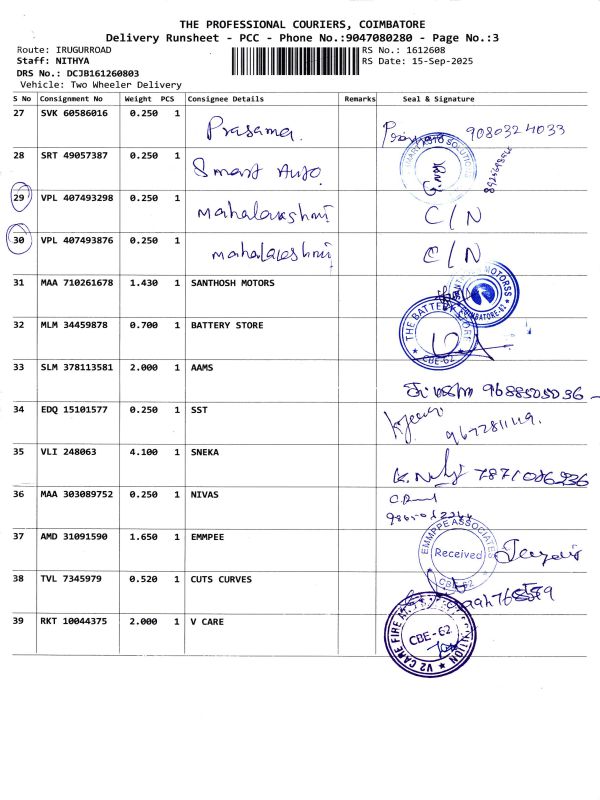 THE PROFESSIONAL COURIERS, COIMBATORE
Delivery Runsheet - PCC - Phone No.:9047080280 - Page No.:3
Route: IRUGURROAD
RS No.: 1612608
Staff: NITHYA
RS Date: 15-Sep-2025
DRS No.: DCJB161260803
Vehicle: Two Wheeler Delivery
S No Consignment No Weight PCS Consignee Details Remarks Seal & Signature
27 SVK 60586016 0.250 1 Prasama 9080324033
28 SRT 49057387 0.250 1 Smart Auto
29 VPL 407493298 0.250 1 mahalakshmi C/N
30 VPL 407493876 0.250 1 mahalakshmi C/N
31 MAA 710261678 1.430 1 SANTHOSH MOTORS
COIMBATORE-62
32 MLM 34459878 0.700 1 BATTERY STORE
THE BATTERY STORE
CBE-62
33 SLM 378113581 2.000 1 AAMS 9688505036
34 EDQ 15101577 0.250 1 SST
9677281119.
35 VLI 248063 4.100 1 SNEKA
36 MAA 303089752 0.250 1 NIVAS
37 AMD 31091590 1.650 1 EMMPEE
EMMPPE ASSOCIATES
Received
CBE-62
38 TVL 7345979 0.520 1 CUTS CURVES
39 RKT 10044375 2.000 1 V CARE
V2 CARE FIRE
CBE-62